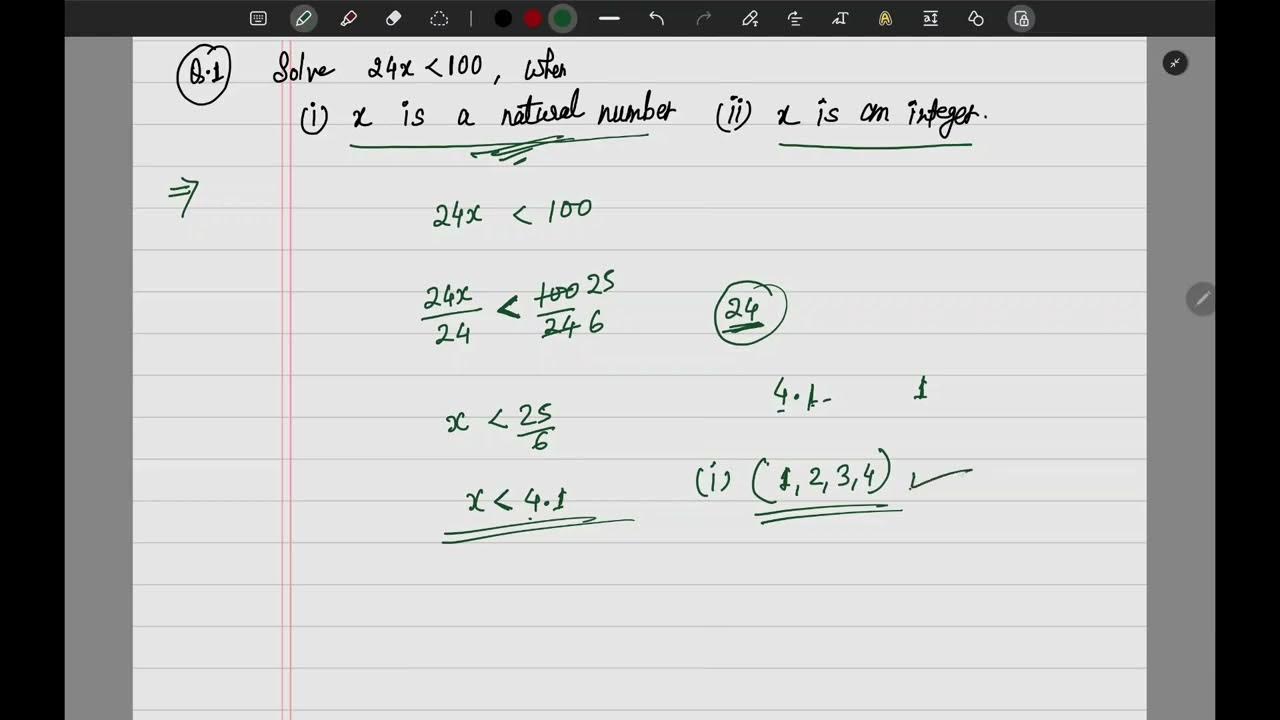 Q.1 Solve 24x < 100, when
(i) x is a natural number (ii) x is an integer.
⇒
24x < 100
24x/24 < 100/24 25/6
24
x < 25/6
4.1- 1
x < 4.1
(i) (1, 2, 3, 4) ✓